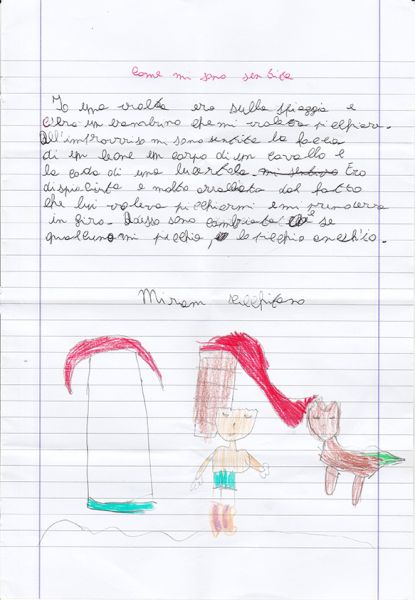 come mi sono sentita
Io una volta ero sulla spiaggia e
c'era un bambino che mi voleva picchiare.
All'improvviso mi sono sentita la faccia
di un leone un corpo di un cavallo e
la coda di una lucertola. mi sentivo Ero
dispiaciuta e molto arrabbiata dal fatto
che lui voleva picchiarmi e mi prendeva
in giro. Adesso sono cambiata e se
qualcuno mi picchia lo picchio anch'io.
Miriam